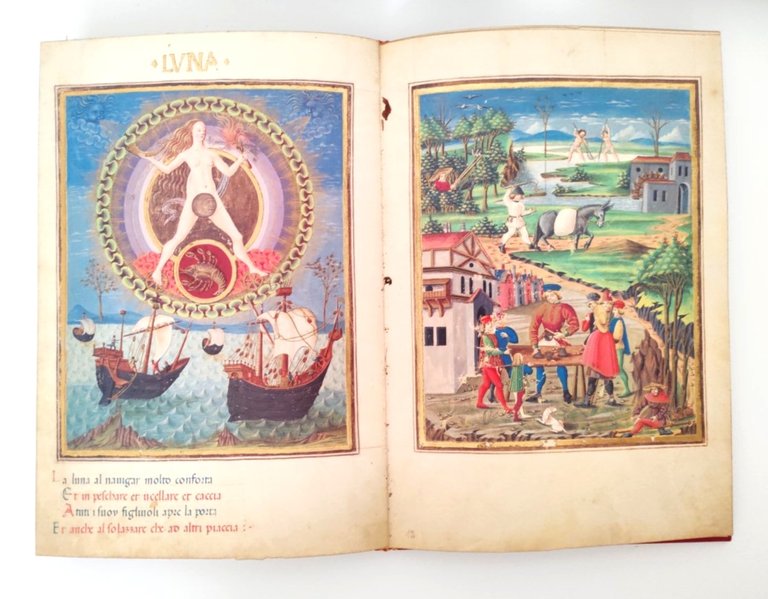 · LVNA ·
La luna al nauigar molto conforta
Et in peschare et ucellare et caccia
A tuti i suoy figliuoli apre la porta
Et anche al solazzare che ad altri piaccia : -